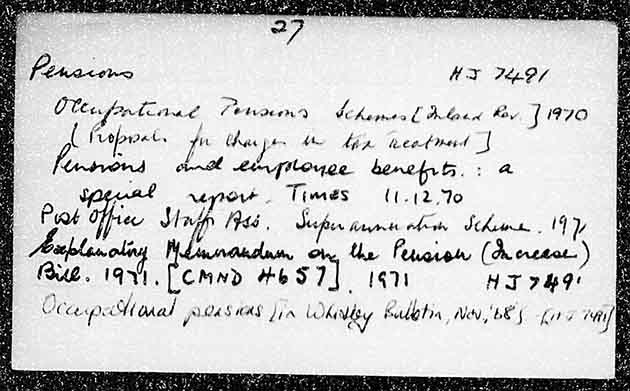 27
Pensions HJ 7491
Occupational Pensions Schemes [Inland Rev.] 1970
[Proposals for changes in tax treatment]
Pensions and employee benefits. : a
special report. Times 11.12.70
Post Office Staff Ass. Superannuation Scheme. 1971
Explanatory Memorandum on the Pension (Increase)
Bill. 1971. [CMND 4657]. 1971 HJ 7491
Occupational pensions [in Whitley Bulletin, Nov, '68] - [HJ 7491]